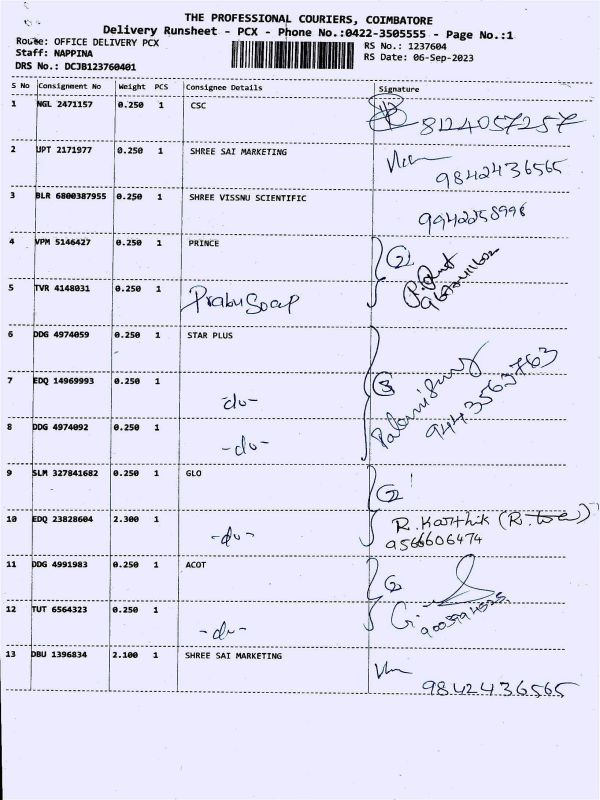 THE PROFESSIONAL COURIERS, COIMBATORE
Delivery Runsheet - PCX - Phone No.:0422-3505555 - Page No.:1
Route: OFFICE DELIVERY PCX
RS No.: 1237604
Staff: NAPPINA
RS Date: 06-Sep-2023
DRS No.: DCJB123760401
S No Consignment No Weight PCS Consignee Details Signature
1 NGL 2471157 0.250 1 CSC
8124057257
2 UPT 2171977 0.250 1 SHREE SAI MARKETING
9842436565
3 BLR 6800387955 0.250 1 SHREE VISSNU SCIENTIFIC
9942258998
4 VPM 5146427 0.250 1 PRINCE
2
5 TVR 4148031 0.250 1 Prabu Soap
6 DDG 4974059 0.250 1 STAR PLUS
7 EDQ 14969993 0.250 1 -do-
3
9443563763
8 DDG 4974092 0.250 1 -do-
9 SLM 327841682 0.250 1 GLO
2
10 EDQ 23828604 2.300 1 -do-
R. Karthik (R.
9566606474
11 DDG 4991983 0.250 1 ACOT
2
12 TUT 6564323 0.250 1 -do-
13 DBU 1396834 2.100 1 SHREE SAI MARKETING
9842436565